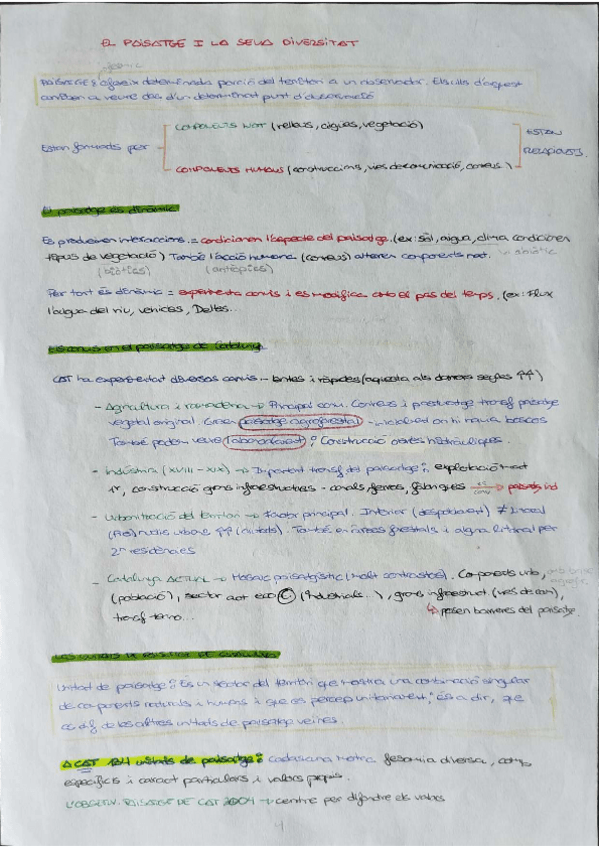 EL PAISATGE I LA SEVA DIVERSITAT
PAISATGE: ofereix determinada porció del territori a un observador. Els ulls d'aquest
arriben a veure des d'un determinat punt d'observació
COMPONENTS NAT (relleus, aigües, vegetació)
Estan formades per
ESTAN
RELACIONATS
COMPONENTS HUMANS (construccions, vies de comunicació, conreus)
El paisatge és dinàmic
Es produeixen interaccions = condicionen l'aspecte del paisatge. (ex: sòl, aigua, clima condicionen
tipus de vegetació) També l'acció humana (conreus) alteren components nat.
(biòtics) (antròpics)
Per tant és dinàmic = experimenta canvis i es modifica amb el pas del temps. (ex: Flux
l'aigua del riu, vehicles, Deltes...
Els canvis en el paisatge de Catalunya
CAT ha experimentat diversos canvis - lentes i ràpides (aquesta als darrers segles ↑↑)
- Agricultura i ramaderia → Principal canvi. Conreus i pastures transf paisatge
vegetal original. Crean paisatge agroforestal - on hi havia boscos
També podem veure l'abancalament: Construcció obres hidràuliques.
- Indústria (XVIII - XIX) → Important transf del paisatge: explotació mat
1r, construcció grans infraestructures - canals, ferros, fàbriques → paisatge ind
- Urbanització del territori → Factor principal. Interior (despoblament) ≠ litoral
nuclis urbans ↑↑ (ciutats). També en àrees forestals i alguna litoral per
2n residències
- Catalunya ACTUAL → Mosaic paisatgístic (molt contrastos). Components urb,
(població), sector act eco C (industrials..), grans infraestruct (vies de com),
transf terreno... ↳ posen barreres del paisatge.
LES UNITATS DE PAISATGE DE CATALUNYA
Unitad de paisatge: És un sector del territori que mostra una combinació singular
de components naturals i humans i que es percep unitariament, és a dir, que
es dif de les altres unitats de paisatge veïnes.
A CAT 134 unitats de paisatge: cadascuna mostra fesomia diversa, comp
específics i caract particulars i valors propis.
L'OBSERV. PAISATGE DE CAT 2004 → centre per difondre els valors